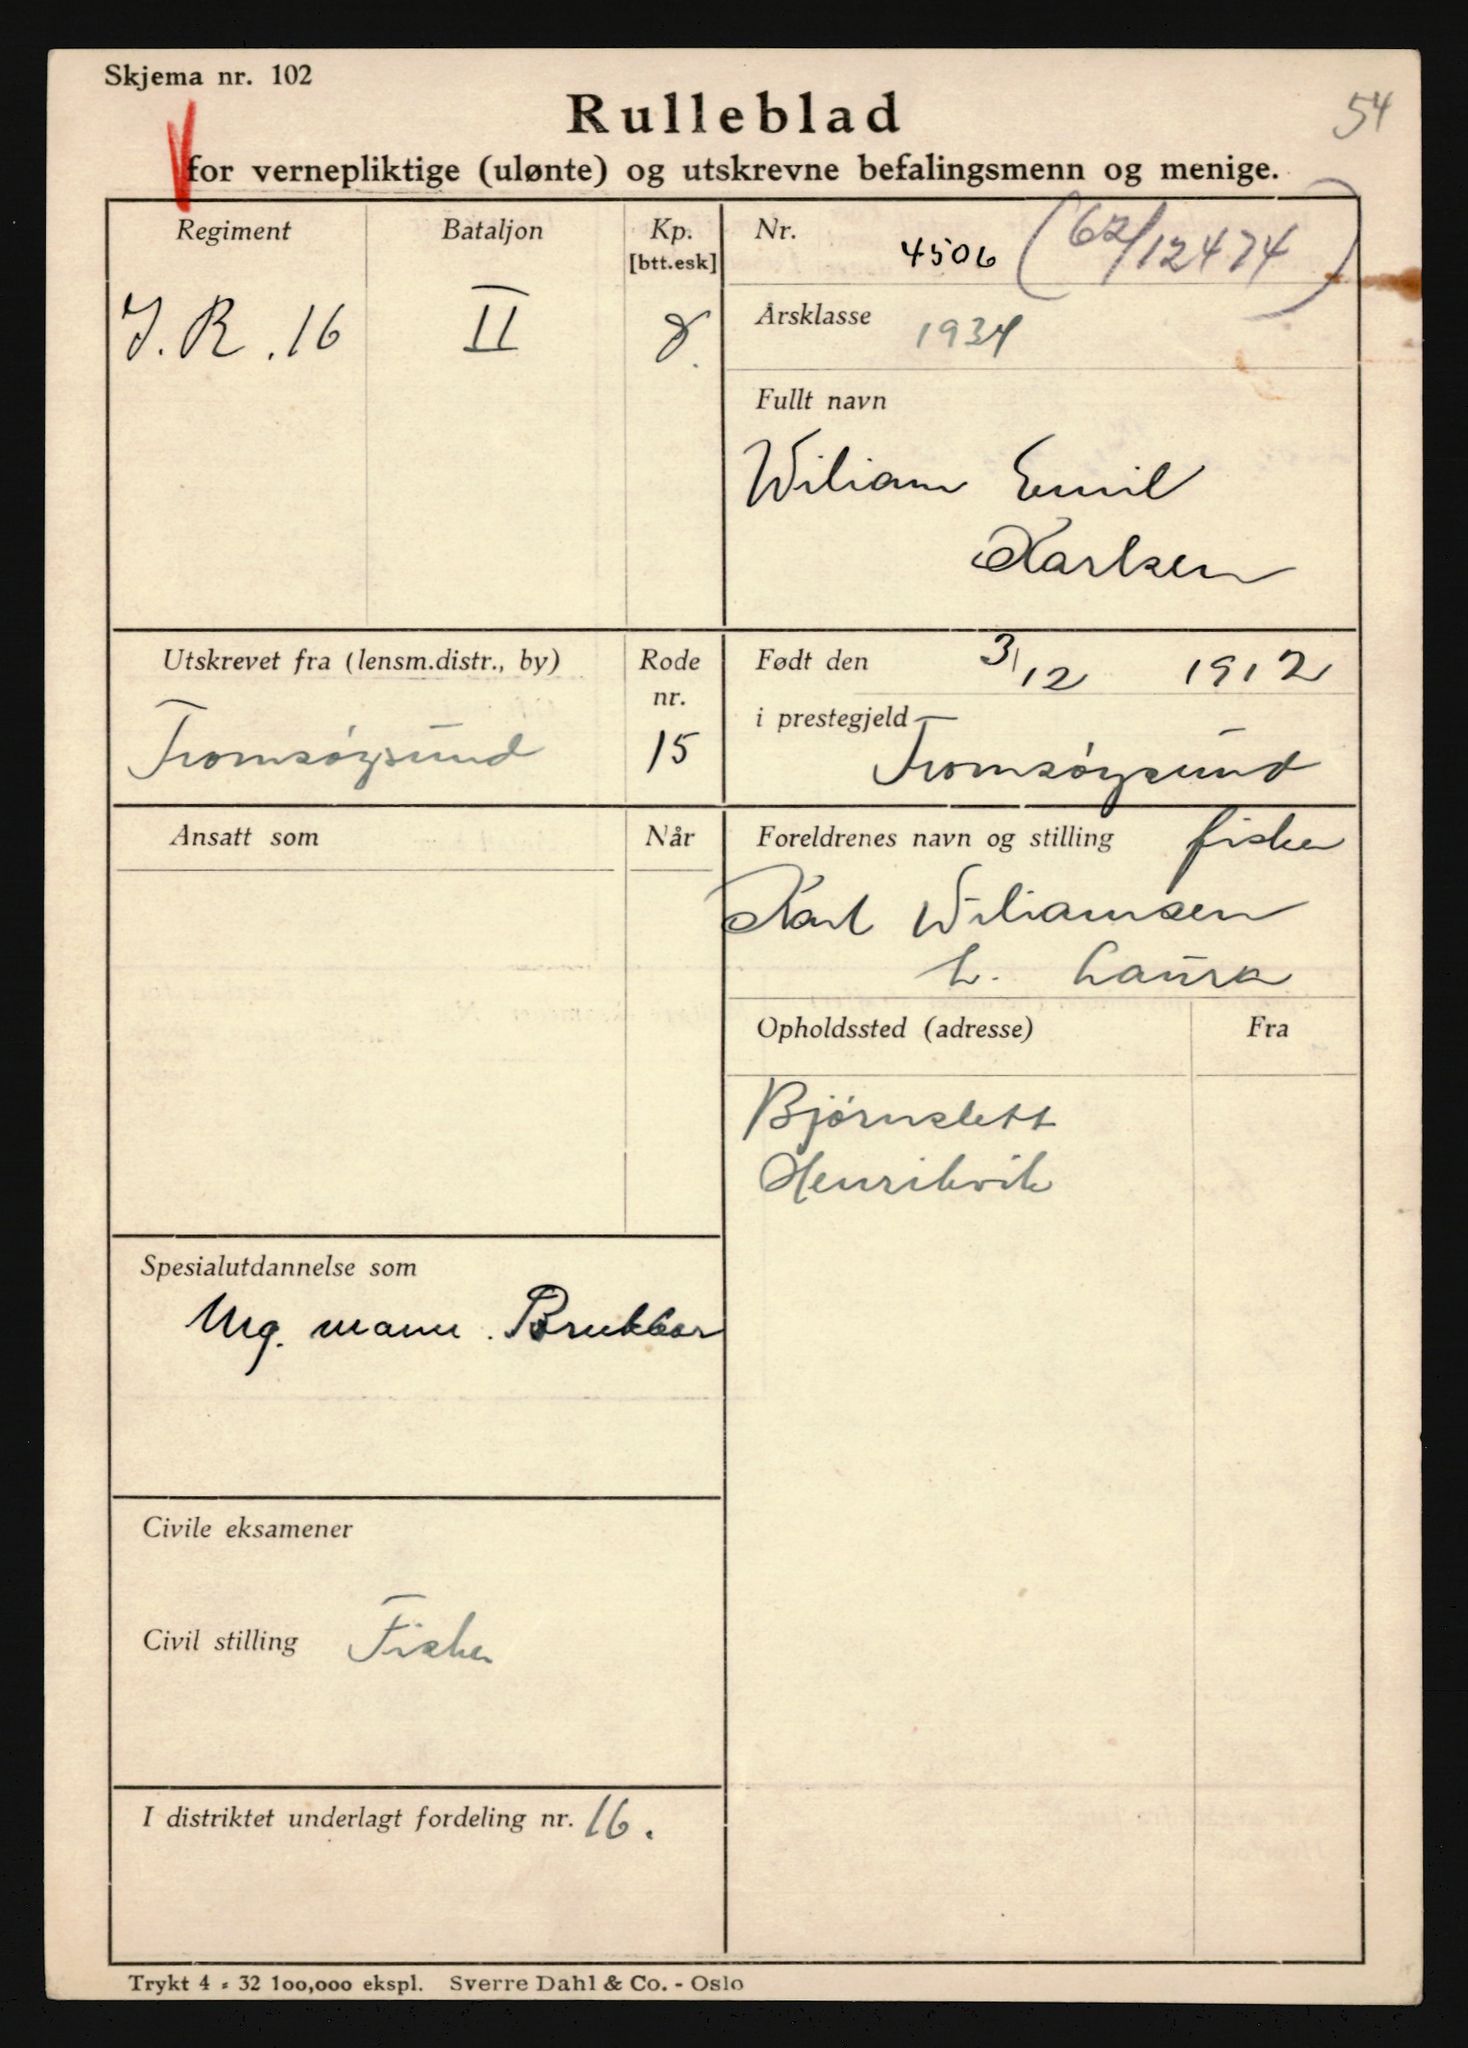 Skjema nr. 102
54
Rulleblad
for vernepliktige (ulønte) og utskrevne befalingsmenn og menige.
Regiment
Bataljon
Kp.
[btt.esk]
J. R. 16
II
8.
Nr.
4506 (62/12474)
Årsklasse 1934
Fullt navn
Wiliam Emil
Karlsen
Utskrevet fra (lensm.distr., by)
Tromsøysund
Rode
nr.
15
Født den 3/12 1912
i prestegjeld
Tromsøysund
Ansatt som
Når
Foreldrenes navn og stilling fisker
Karl Wiliamsen
h. Laura
Opholdssted (adresse)
Fra
Bjørnslett
Henrikvik
Spesialutdannelse som
Mg. mann. Brukbar
Civile eksamener
Civil stilling Fisker
I distriktet underlagt fordeling nr. 16.
Trykt 4 - 32 100,000 ekspl. Sverre Dahl & Co. - Oslo